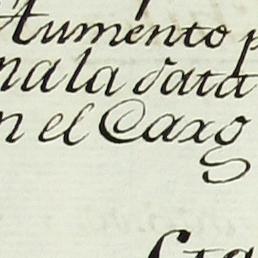 Aumento p
nala data
n el Caxg
Cta